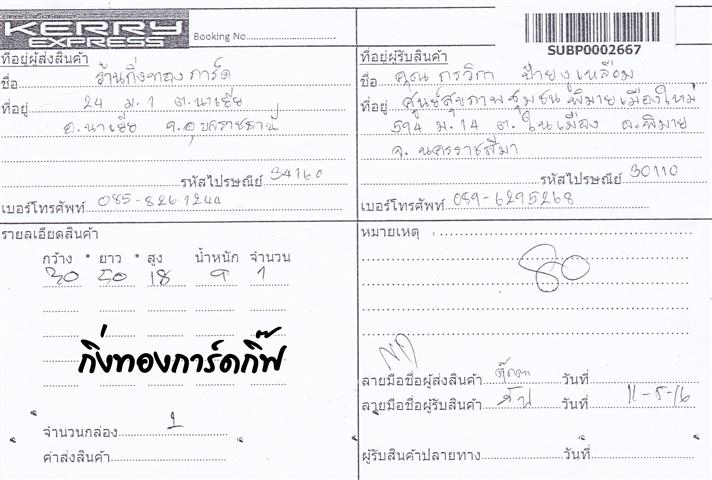 KERRY
EXPRESS
Booking No.
SUBP0002667
ที่อยู่ผู้ส่งสินค้า
ชื่อ ร้านกิ่งทอง การ์ด
ที่อยู่ 24 ม.1 ต.นาเยีย
อ.นาเยีย จ.อุบลราชธานี
รหัสไปรษณีย์ 34160
เบอร์โทรศัพท์ 085-826
ที่อยู่ผู้รับสินค้า
ชื่อ คุณ กรวิกา ป้ายงูเหลือม
ที่อยู่ ศูนย์สุขภาพชุมชน พิมายเมืองใหม่
594 ม.14 ต.ในเมือง อ.พิมาย
จ.นครราชสีมา
รหัสไปรษณีย์ 30110
เบอร์โทรศัพท์ 089-6295268
รายละเอียดสินค้า
กว้าง * ยาว * สูง น้ำหนัก จำนวน
30 50 18 9 1
กิ่งทองการ์ดกิ๊ฟ
จำนวนกล่อง 1
ค่าส่งสินค้า
หมายเหตุ :
80
ลายมือชื่อผู้ส่งสินค้า วันที่
ลายมือชื่อผู้รับสินค้า วันที่ 11-5-16
ผู้รับสินค้าปลายทาง วันที่